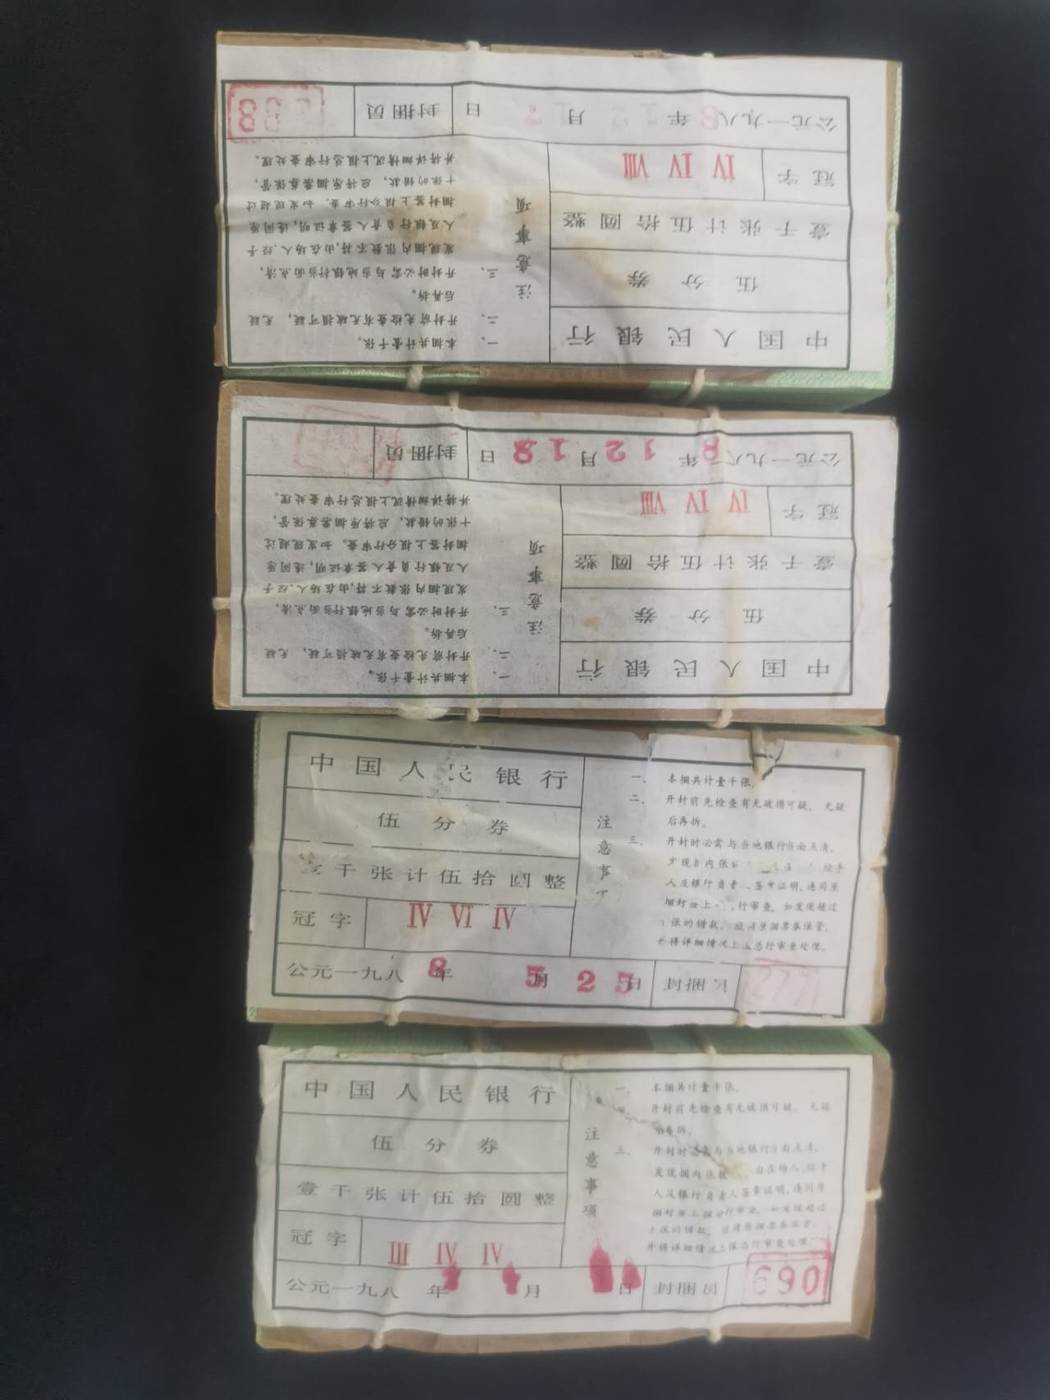 中国人民银行
伍分券
壹千张计伍拾圆整
冠字 IV IV VIII
公元一九八8年 月 日 封捆员
注意事项
一、本捆共计壹千张。
二、开封前先检查有无破损可疑，无疑
后再拆。
三、开封时必需与当地银行当面点清，
发现捆内张数不符，由在场人、经手
人及银行负责人签章证明，连同原
捆封签上报分行审查，如发现超过
十张的错款，应将原捆票券保管，
并将详细情况上报总行审查处理。
中国人民银行
伍分券
壹千张计伍拾圆整
冠字 IV IV VIII
公元一九八8年12月18日 封捆员
注意事项
一、本捆共计壹千张。
二、开封前先检查有无破损可疑，无疑
后再拆。
三、开封时必需与当地银行当面点清，
发现捆内张数不符，由在场人、经手
人及银行负责人签章证明，连同原
捆封签上报分行审查，如发现超过
十张的错款，应将原捆票券保管，
并将详细情况上报总行审查处理。
中国人民银行
伍分券
壹千张计伍拾圆整
冠字 IV VI IV
公元一九八8年5月25日 封捆
注意事
一、本捆共计壹千张。
二、开封前先检查有无破损可疑，无疑
后再拆。
三、开封时必需与当地银行当面点清，
发现 内张 经手
人及银行负责 签章证明，连同原
捆封 上 行审查，如发现超过
张的错款，应将原捆票券保管，
并将详细情况上 总行审查处理。
中国人民银行
伍分券
壹千张计伍拾圆整
冠字 III IV IV
公元一九八 年 月 日 封捆员 690
注意事项
一、本捆共计壹千张。
开封前先检查有无破损可疑，无疑
后再拆。
三、开封时必需与当地银行当面点清，
发现捆内张数 由在场人、经手
人及银行负责人签章证明，连同原
捆封签上报分行审查，如发现超过
十张的错款，应将原捆票券保管，
并将详细情况上报总行审查处理。